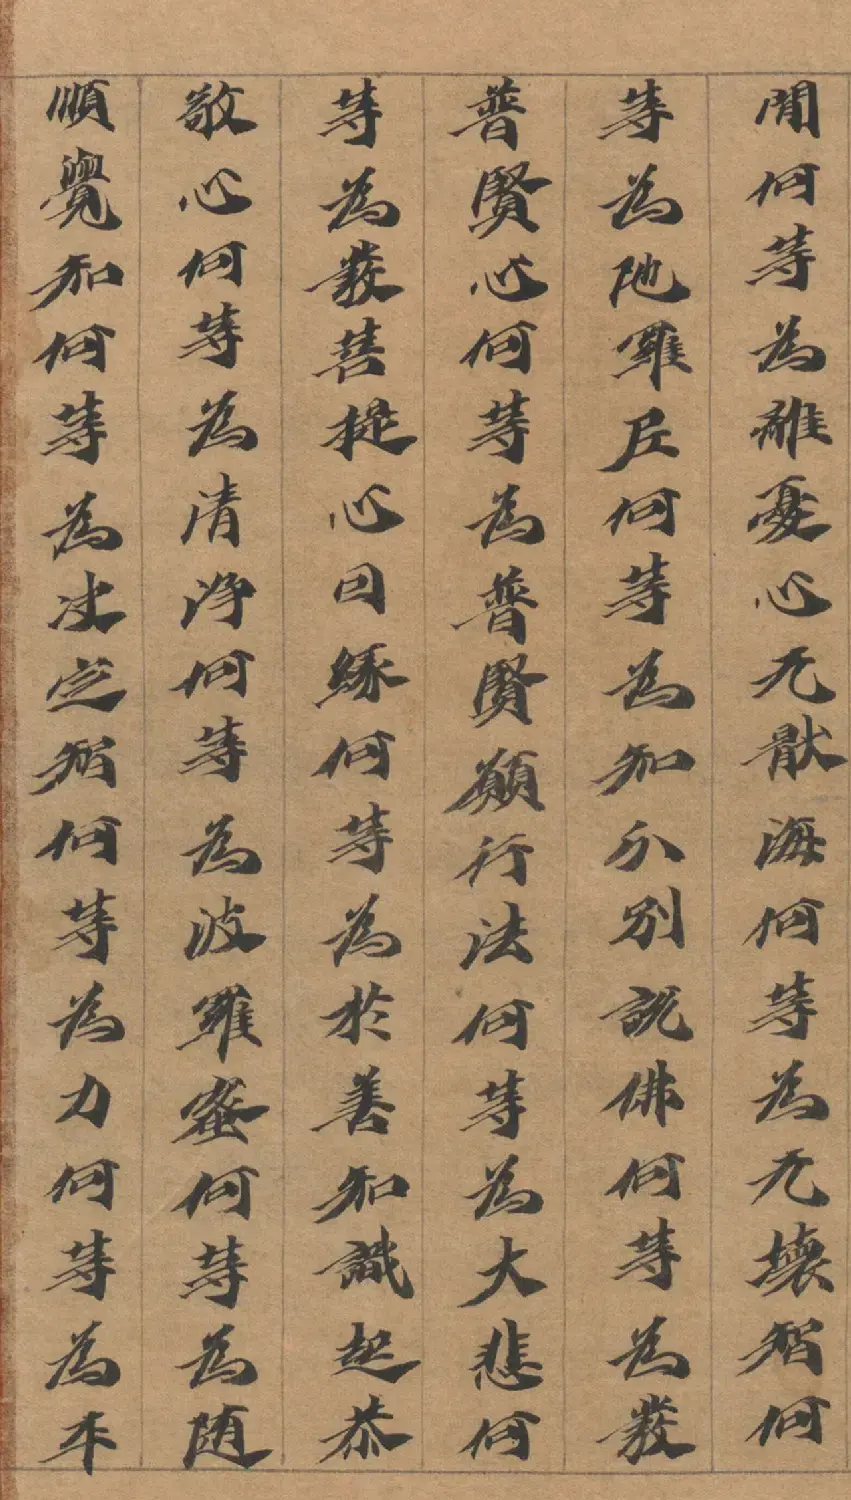 閒何等為離憂心无猒海何等為无壞智何
等為陁羅尼何等為知分別說佛何等為發
普賢心何等為普賢願行法何等為大悲何
等為發菩提心因緣何等為於善知識起恭
敬心何等為清淨何等為波羅蜜何等為随
順覺知何等為决定智何等為力何等為平